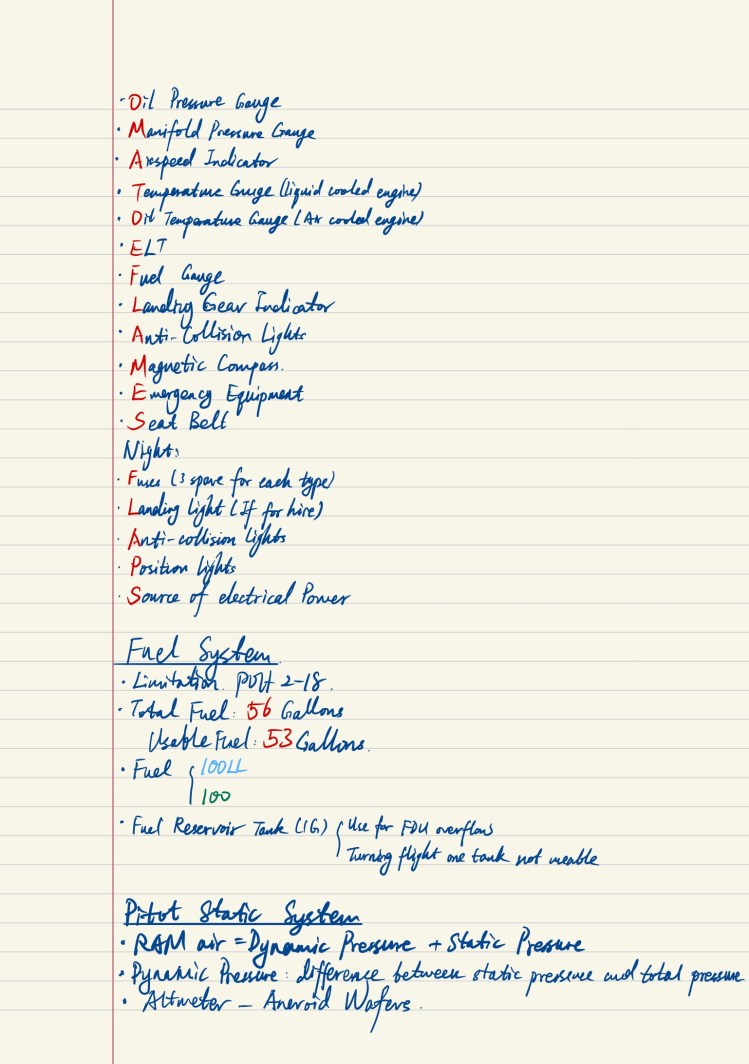 · Oil Pressure Gauge
· Manifold Pressure Gauge
· Airspeed Indicator
· Temperature Gauge (liquid cooled engine)
· Oil Temperature Gauge (Air cooled engine)
· ELT
· Fuel Gauge
· Landing Gear Indicator
· Anti-Collision Lights
· Magnetic Compass.
· Emergency Equipment
· Seat Belt
Night:
· Fuses (3 spare for each type)
· Landing light (If for hire)
· Anti-collision lights
· Position lights
· Source of electrical Power
Fuel System.
· Limitation. POH 2-18.
· Total Fuel: 56 Gallons
Usable Fuel: 53 Gallons.
· Fuel { 100LL
100
· Fuel Reservoir Tank (1G) { Use for FDU overflows
Turning flight one tank not useable
Pitot Static System
· RAM air = Dynamic Pressure + Static Pressure
· Dynamic Pressure: difference between static pressure and total pressure
· Altmeter - Aneroid Wafers.